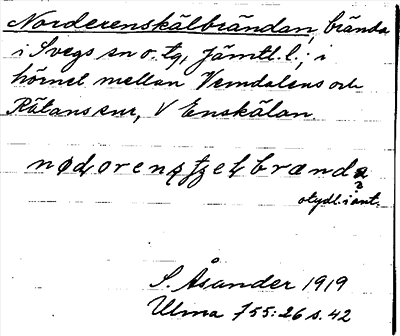 Norderenskälbrändan, brända
i Svegs sn o. tg, Jämtl. l.; i
hörnet mellan Vemdalens och
Rätans snr, V Enskälan.
otydl. i ant.
S. Åsander 1919
Ulma 755:26 s. 42